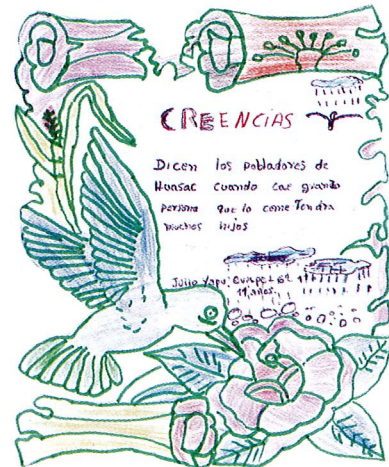 CREENCIAS
Dicen los pobladores de
Huasac cuando cae granizo
persona que lo come Tendra
muchos hijos
Julio Yapu
11 años